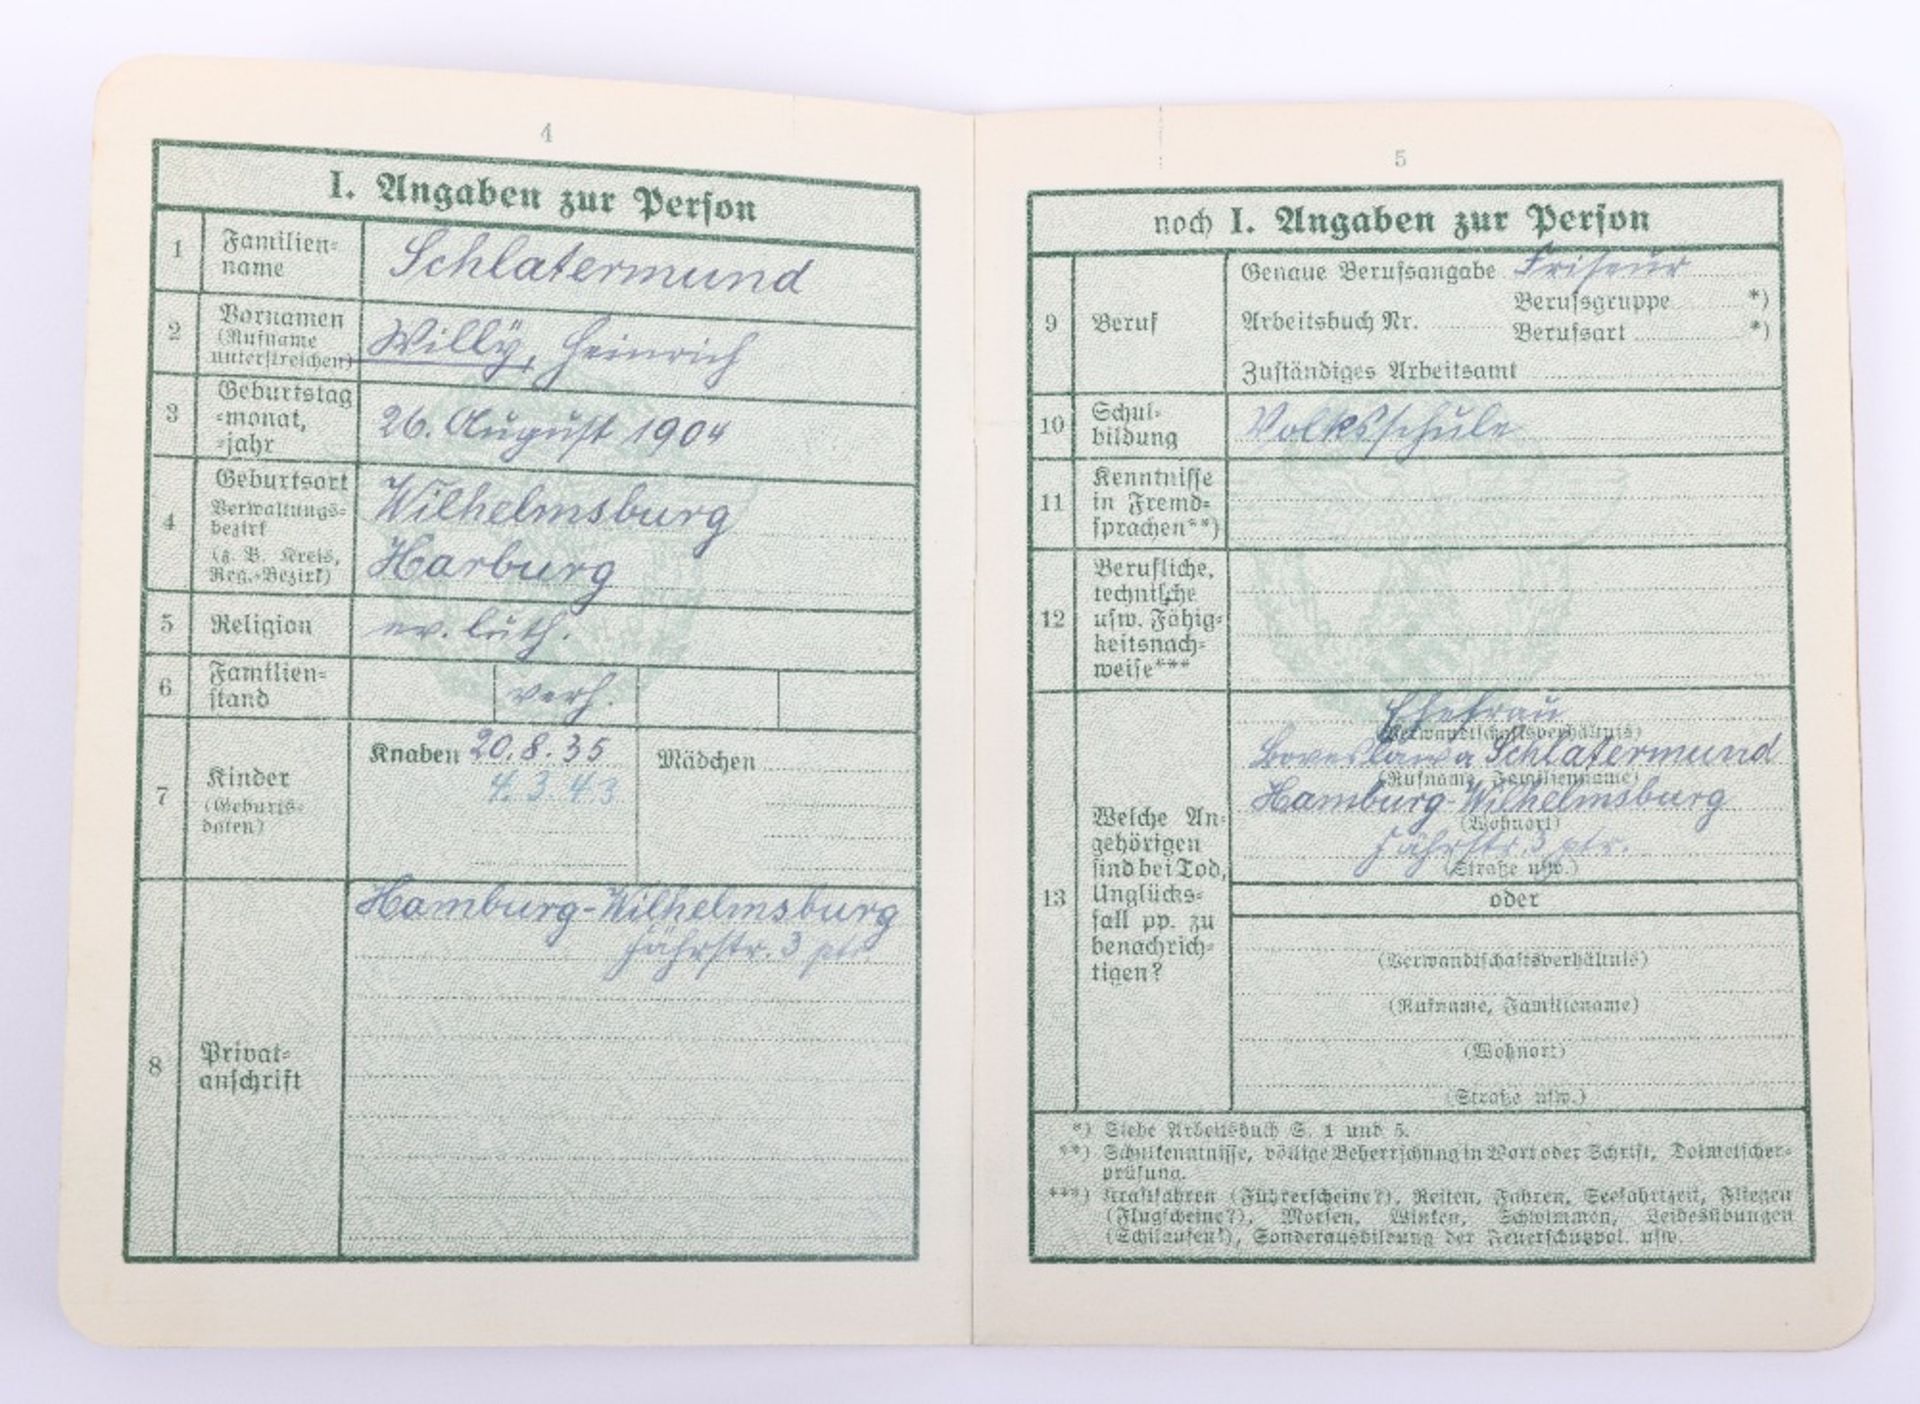 4
I. Angaben zur Person
1
Familien-
name
Schlatermund
2
Vornamen
(Rufname
unterstreichen)
Willy, Heinrich
3
Geburtstag
-monat,
-jahr
26. August 1904
4
Geburtsort
Verwaltungs-
bezirk
(z. B. Kreis,
Reg.-Bezirk)
Wilhelmsburg
Harburg
5
Religion
ev. luth.
6
Familien-
stand
verh.
7
Kinder
(Geburts-
daten)
Knaben 20.8.35
4.3.43
Mädchen
8
Privat-
anschrift
Hamburg-Wilhelmsburg
Fährstr. 3 ptr.
5
noch I. Angaben zur Person
9
Beruf
Genaue Berufsangabe Friseur
Berufsgruppe *)
Arbeitsbuch Nr.
Berufsart *)
Zuständiges Arbeitsamt
10
Schul-
bildung
Volksschule
11
Kenntnisse
in Fremd-
sprachen**)
12
Berufliche,
technische
usw. Fähig-
keitsnach-
weise***
13
Welche An-
gehörigen
sind bei Tod,
Unglücks-
fall pp. zu
benachrich-
tigen?
Ehefrau
(Verwandtschaftsverhältnis)
Schlatermund
(Rufname, Familienname)
Hamburg-Wilhelmsburg
(Wohnort)
Fährstr. 3 ptr.
(Straße usw.)
oder
(Verwandtschaftsverhältnis)
(Rufname, Familienname)
(Wohnort)
(Straße usw.)
*) Siehe Arbeitsbuch S. 1 und 5.
**) Schulkenntnisse, völlige Beherrschung in Wort oder Schrift, Dolmetscher-
prüfung.
***) Kraftfahren (Führerscheine?), Reiten, Fahren, Seefahrtzeit, Fliegen
(Flugscheine?), Morsen, Winken, Schwimmen, Leibesübungen
(Schilaufen!), Sonderausbildung der Feuerschutzpol. usw.